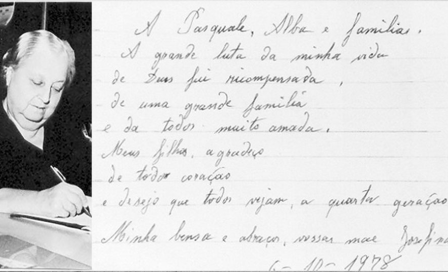 A Pasquale, Alba e familias.
A grande luta da minha vida
de Deus fui recompensada,
de uma grande familia
e da todos muito amada.
Meus filhos, agradeço
de todo coração
e desejo que todos vejam, a quarta geração
Minha bensa e abraços, vossas mae Josefina
6-10-1978